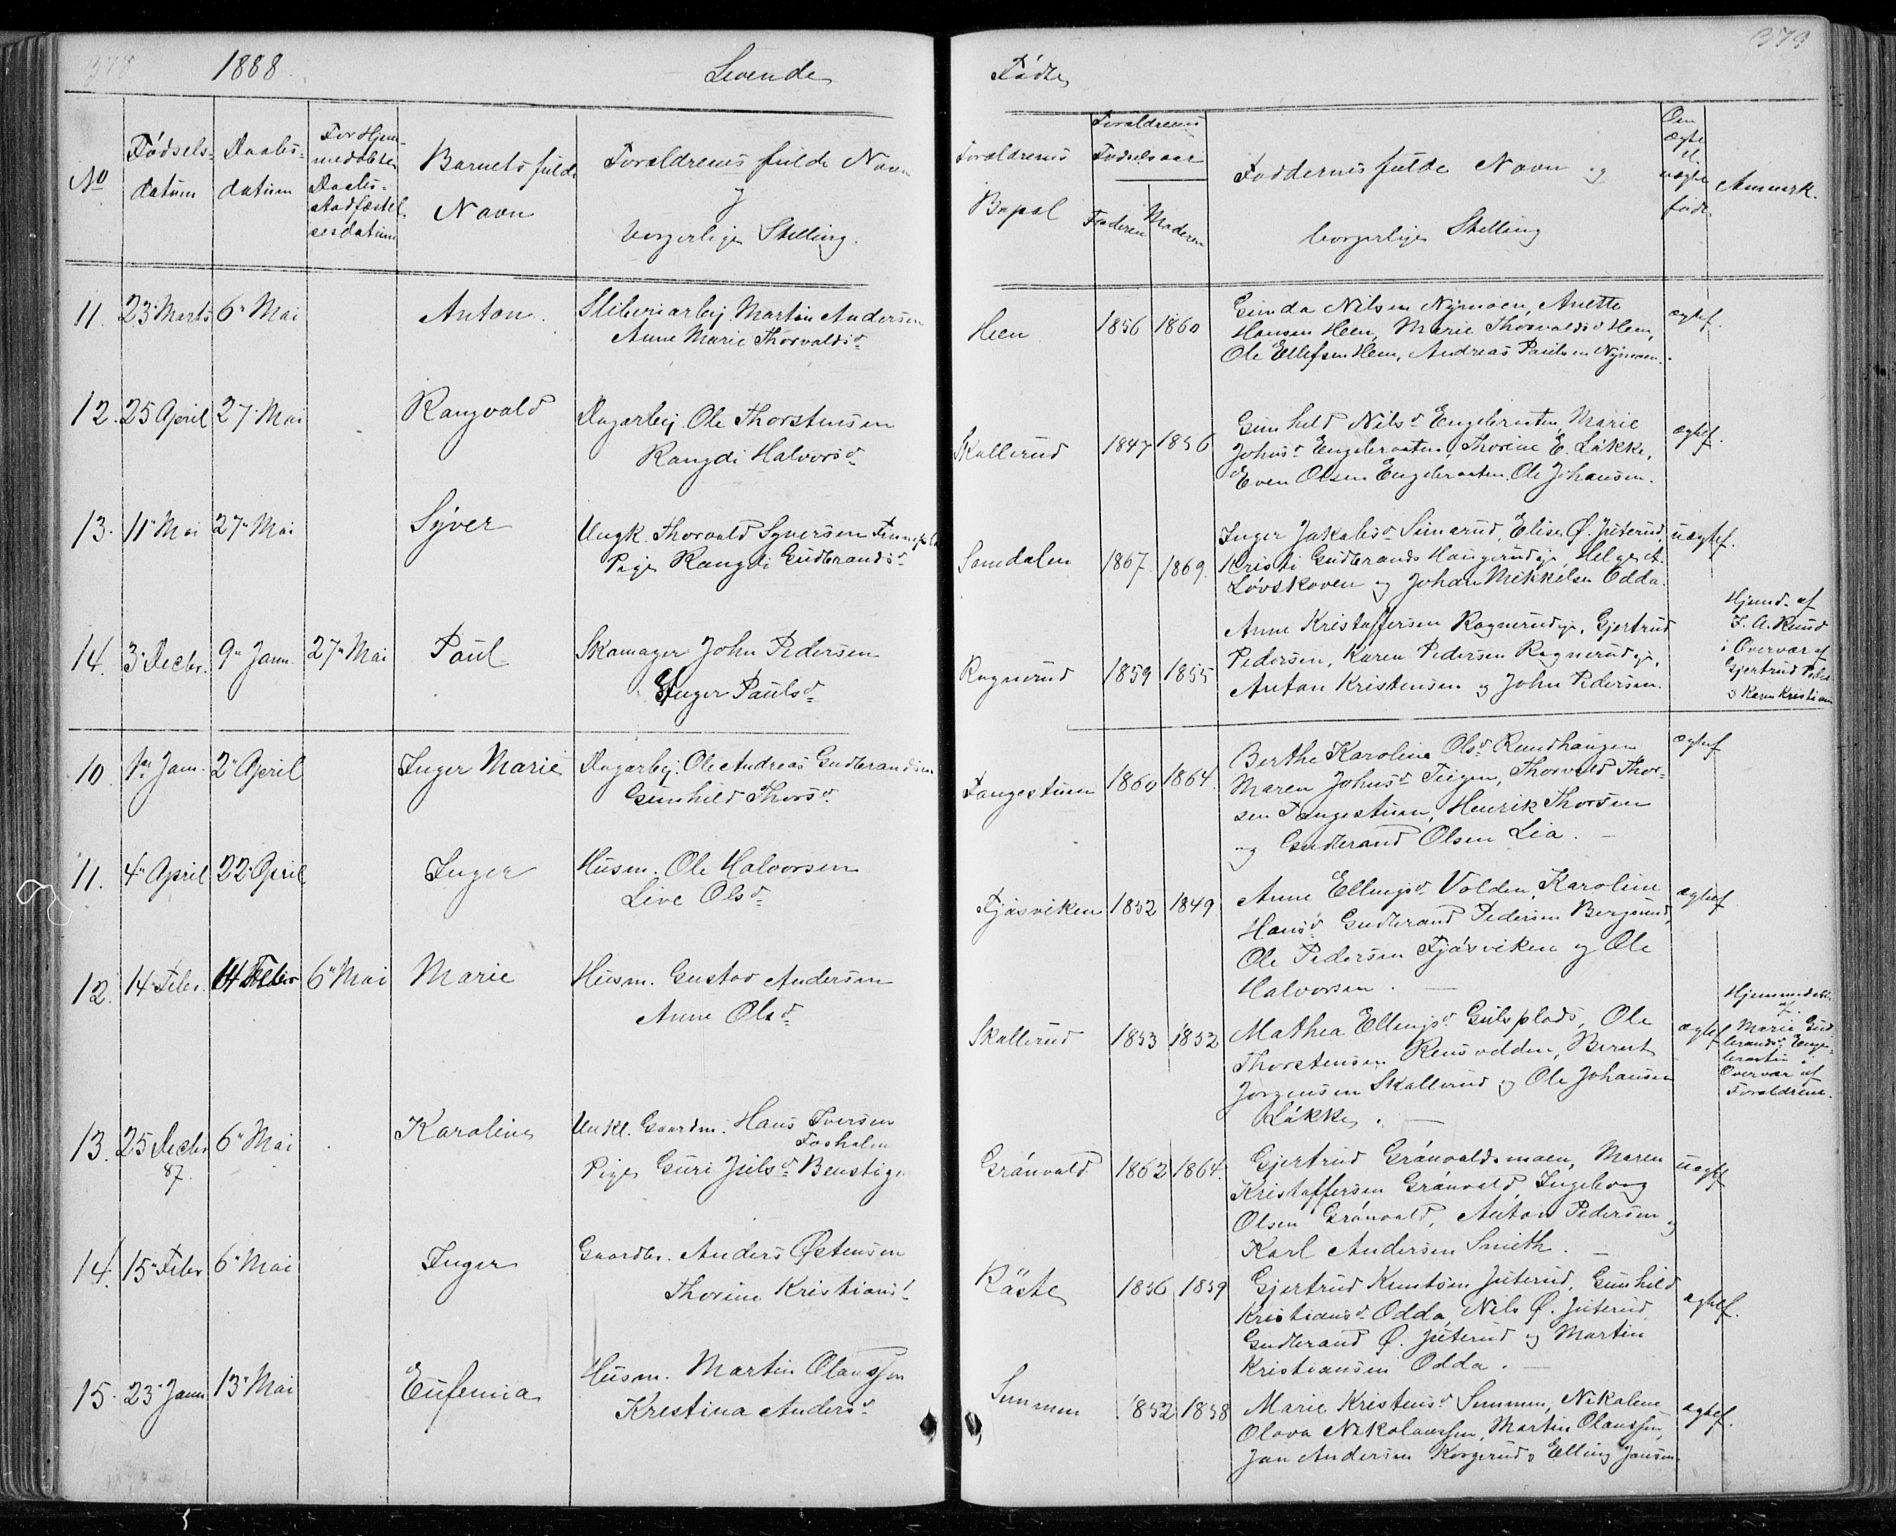 378 1888. Levende
Fødte 379
No
Fødsels-
datum
Daabs-
datum
For Hjem-
medøbte
Daabs-
Stadfæstel-
sesdatum
Barnets fulde
Navn
Forældrenes fulde Navn
og
borgerlige Stilling.
Forældrenes
Bopæl
Forældrenes
Fødselsaar
Faderen
Moderen
Faddernes fulde Navn og
borgerlige Stilling
Om
ægte
el.
uægte
født.
Anmærk.
11. 23 Marts 6 Mai Anton. Sliberiarbej. Martin Andersen
Anne Marie Thorvaldsd.
Heen 1856 1860
Gunda Nilsen Nymoen, Anette
Hansen Heen, Marie Thorvaldsd Heen,
Ole Ellefsen Heen, Andreas Paulsen Nymoen.
ægtef.
12. 25 April 27 Mai Rangvald Dagarbej. Ole Thorstensen
Rangdi Halvorsd.
Skallerud 1847 1856
Gunhild Nilsd Engebraaten, Marie
Johnsd Engebraaten, Thorine E. Løkke,
Even Olsen Engebraaten, Ole Johansen.
ægtef.
13. 11 Mai 27 Mai Syver Ungk. Thorvald Syversen
Pige Rangdi Gudbrandsd.
Somdalen 1867. 1869.
Inger Jakobsd Simarud, Elise Ø. Juterud,
Kristi Gudbrands Haugerudeje, Helge A.
Løvskoven og Johan Mikkelsen Odda.
uægtef.
14. 3 Decbr. 9 Janr. 27 Mai Paul Skomager John Pedersen
Inger Paulsd.
Ragnerud 1859 1855
Anne Kristoffersen Ragnerudeje, Gjertrud
Pedersen, Karen Pedersen Ragnerudeje,
Anton Kristensen og John Pedersen.
Hjemd. af
i Overvær af
Gjertrud Peders
o Karen Kristians
10. 1 Jan. 2 April Inger Marie Dagarbej. Ole Andreas Gudbrandsen
Gunhild Thorsd.
Tangestuen 1860 1864.
Berthe Karoline Olsd Rundhaugen
Maren Johnsd Teigen, Thorvald Thor-
sen Tangestuen, Henrik Thorsen
og Gudbrand Olsen Lia.
ægtef
11. 4 April 22 April Inger Husm. Ole Halvorsen
Live Olsd.
Fjøsviken 1852 1849
Anne Ellingsd Volden, Karoline
Hansd Gudbrand Pedersen Bergsund,
Ole Pedersen Fjøsviken og Ole
Halvorsen.
ægtef
12. 14 Febr. 14 Febr 6 Mai Marie Husm. Gustav Andersen
Anne Olsd.
Skallerud 1853 1852
Mathea Ellingsd Gulsplads, Ole
Thorstensen Rensvolden, Bernt
Jørgensen Skallerud og Ole Johansen
Løkke.
ægtef
Hjemmedøbt
af
Marie Gud-
brandsd Enge-
braaten i
Overvær af
Forældrene.
13. 25 Decbr 6 Mai Karoline Unkl. Gaardm. Hans Iversen
87. Foshalen
Pige Guri Juls d.
Grønvold 1862 1864.
Gjertrud Grønvoldsmoen, Maren
Kristoffersen Grønvold, Ingeborg
Olsen Grønvold, Anton Pedersen og
Karl Andersen Smith.
uægtef
14. 15 Febr 6 Mai Inger Gaardbr. Anders Østensen
Thorine Kristiansd.
Røste 1856 1859
Gjertrud Knutsen Juterud, Gunhild
Kristiansd Odda, Nils Ø. Juterud
Gudbrand Ø. Juterud og Martin
Kristiansen Odda.
ægtef.
15. 23 Janr 13 Mai Eufemia Husm. Martin Olaussen
Krestina Andersd
Semmen 1852 1858
Marie Kristensd Semmen, Nikoline
Olava Nikolaussen, Martin Olaussen,
Jan Andersen Korgerud o Elling Jansen
ægtef.